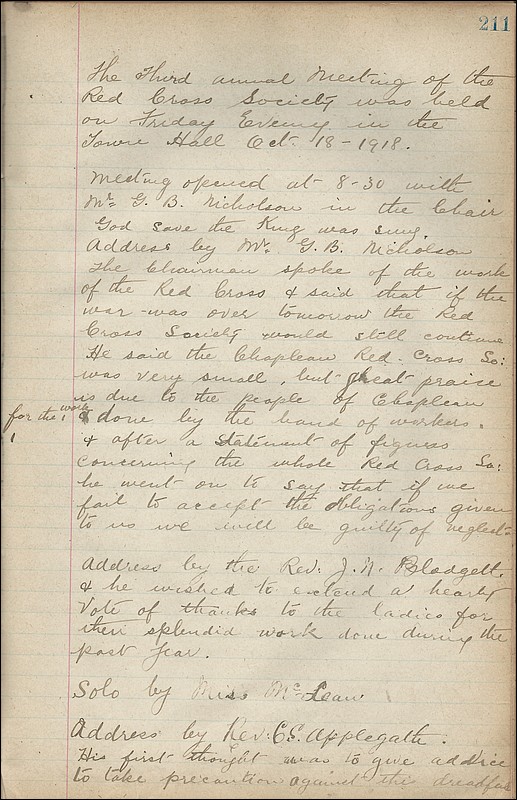 211
The Third annual Meeting of the
Red Cross Society was held
on Friday Evening in the
Town Hall Oct. 18-1918.
Meeting opened at 8-30 with
Mr. G. B. Nicholson in the Chair
God save the King was sung.
Address by Mr. G.B. Nicholson
The Chairman spoke of the work
of the Red Cross & said that if the
war was over tomorrow the Red
Cross Society would still continue
He said the Chapleau Red-Cross So:
was very small, but great praise
is due to the people of Chapleau
for the work done by the band of workers.
& after a statement of figures
concerning the whole Red Cross So:
he went on to say that if we
fail to accept the obligations given
to us we will be guilty of neglect-
Address by the Rev. J. N. Blodgett.
& he wished to extend a hearty
Vote of thanks to the ladies for
their splendid work done during the
past year.
Solo by Miss McLean
Address by Rev. C.E. Applegath.
His first thought was to give advice
to take precaution against this dreadful